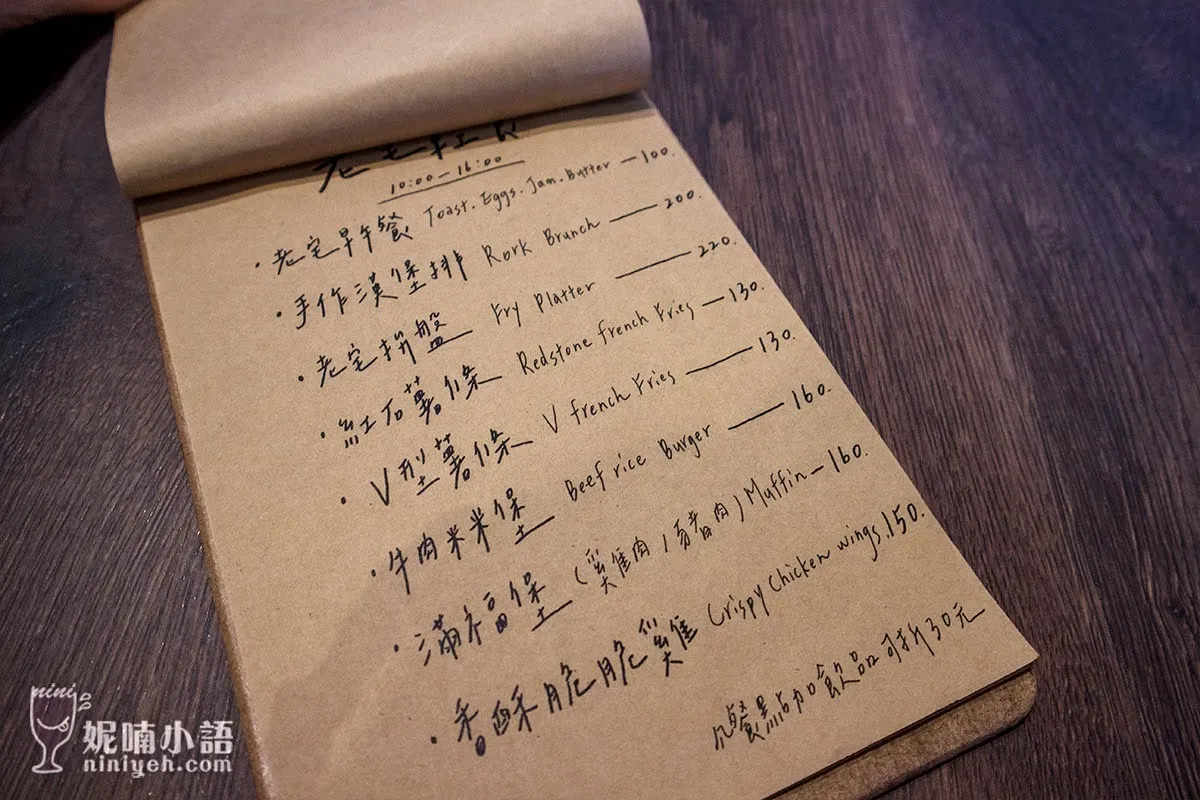 老宅輕食
10:00-16:00
·老宅早午餐 Toast. Eggs. Jam. Butter —100.
·手作漢堡排 Rork Brunch —200.
·老宅拼盤 Fry Platter —220.
·紅石薯條 Redstone french Fries —130.
·V型薯條 V french Fries —130.
·牛肉米米堡 Beef rice Burger —160.
·滿福堡 (雞肉/豬肉) Muffin —160.
·香酥脆脆雞 Crispy Chicken wings.150.
餐點加飲品可折30元
nini
妮喃小語
niniyeh.com